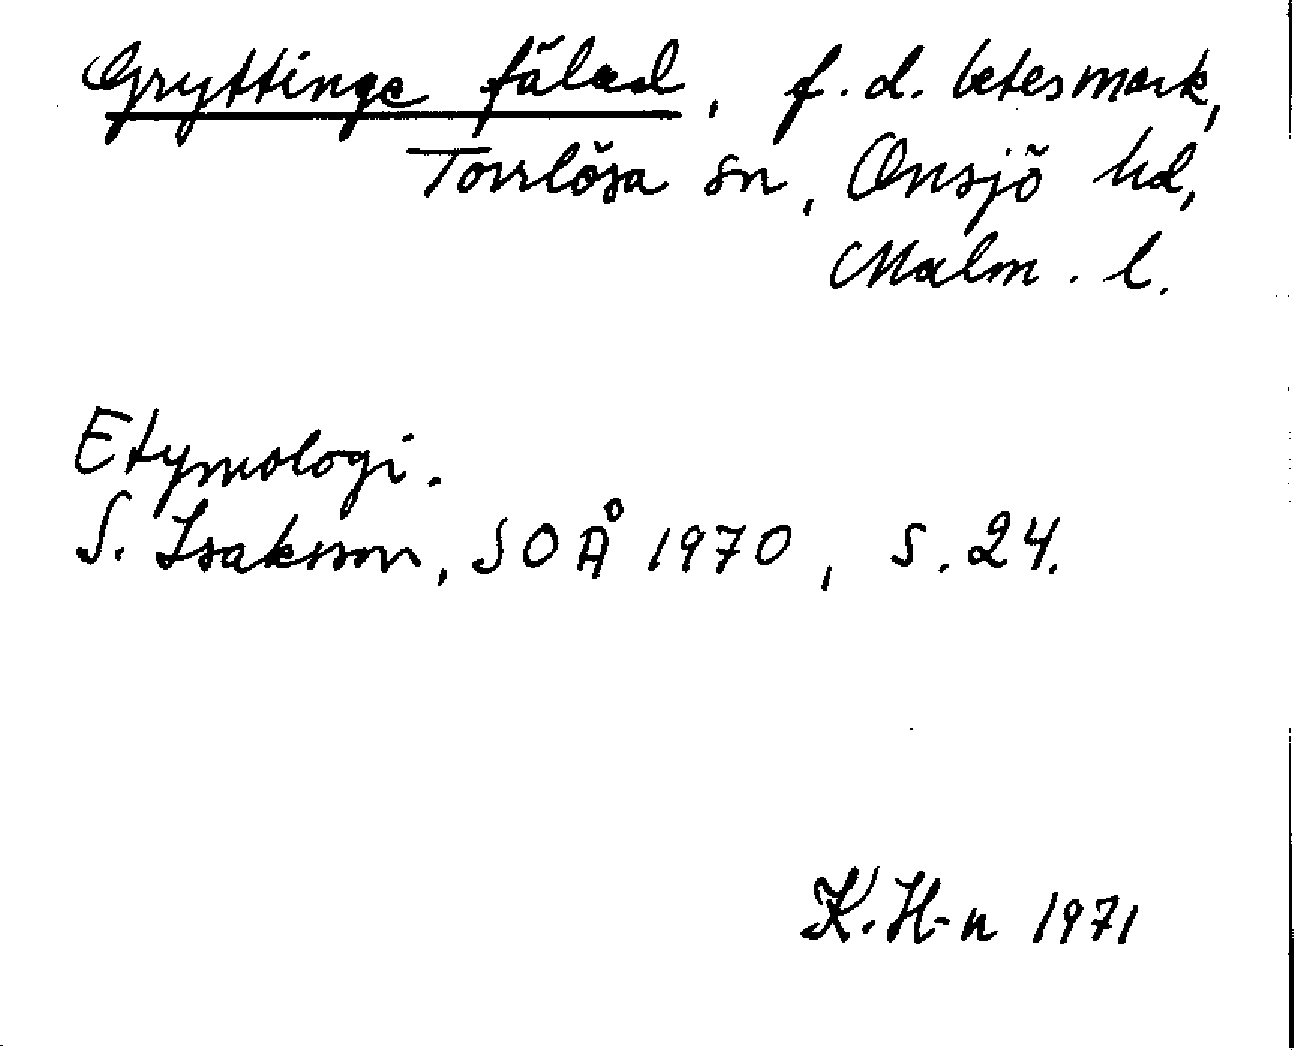 Gryttinge fälad, f.d. betesmark,
Torrlösa sn, Onsjö hd,
Malm. l.
Etymologi.
S. Isaksson, SOÅ 1970, s. 24.
K. H-n 1971